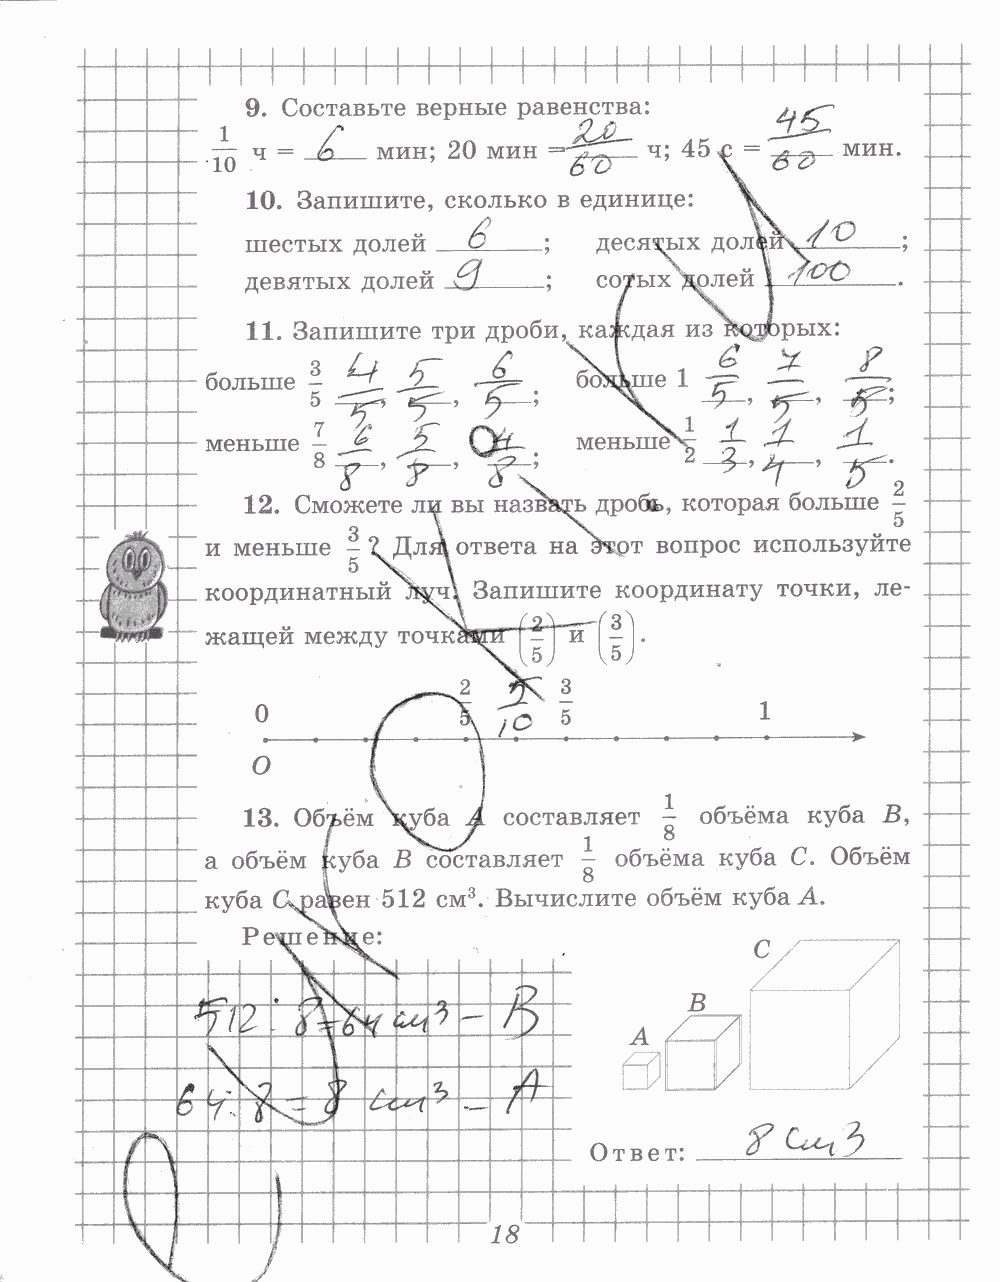 9. Составьте верные равенства:
1/10 ч = 6 мин; 20 мин = 20/60 ч; 45 с = 45/60 мин.
10. Запишите, сколько в единице:
шестых долей 6; десятых долей 10;
девятых долей 9; сотых долей 100.
11. Запишите три дроби, каждая из которых:
больше 3/5 4/5, 5/5, 6/5; больше 1 6/5, 7/5, 8/5;
меньше 7/8 6/8, 5/8, 4/8; меньше 1/2 1/3, 1/4, 1/5.
12. Сможете ли вы назвать дробь, которая больше 2/5
и меньше 3/5? Для ответа на этот вопрос используйте
координатный луч. Запишите координату точки, ле-
жащей между точками (2/5) и (3/5).
0 2/5 5/10 3/5 1
O
13. Объём куба A составляет 1/8 объёма куба B,
а объём куба B составляет 1/8 объёма куба C. Объём
куба C равен 512 см³. Вычислите объём куба A.
Решение:
512 : 8 = 64 см³ – B
64 : 8 = 8 см³ – A
A B C
Ответ: 8 см3
18